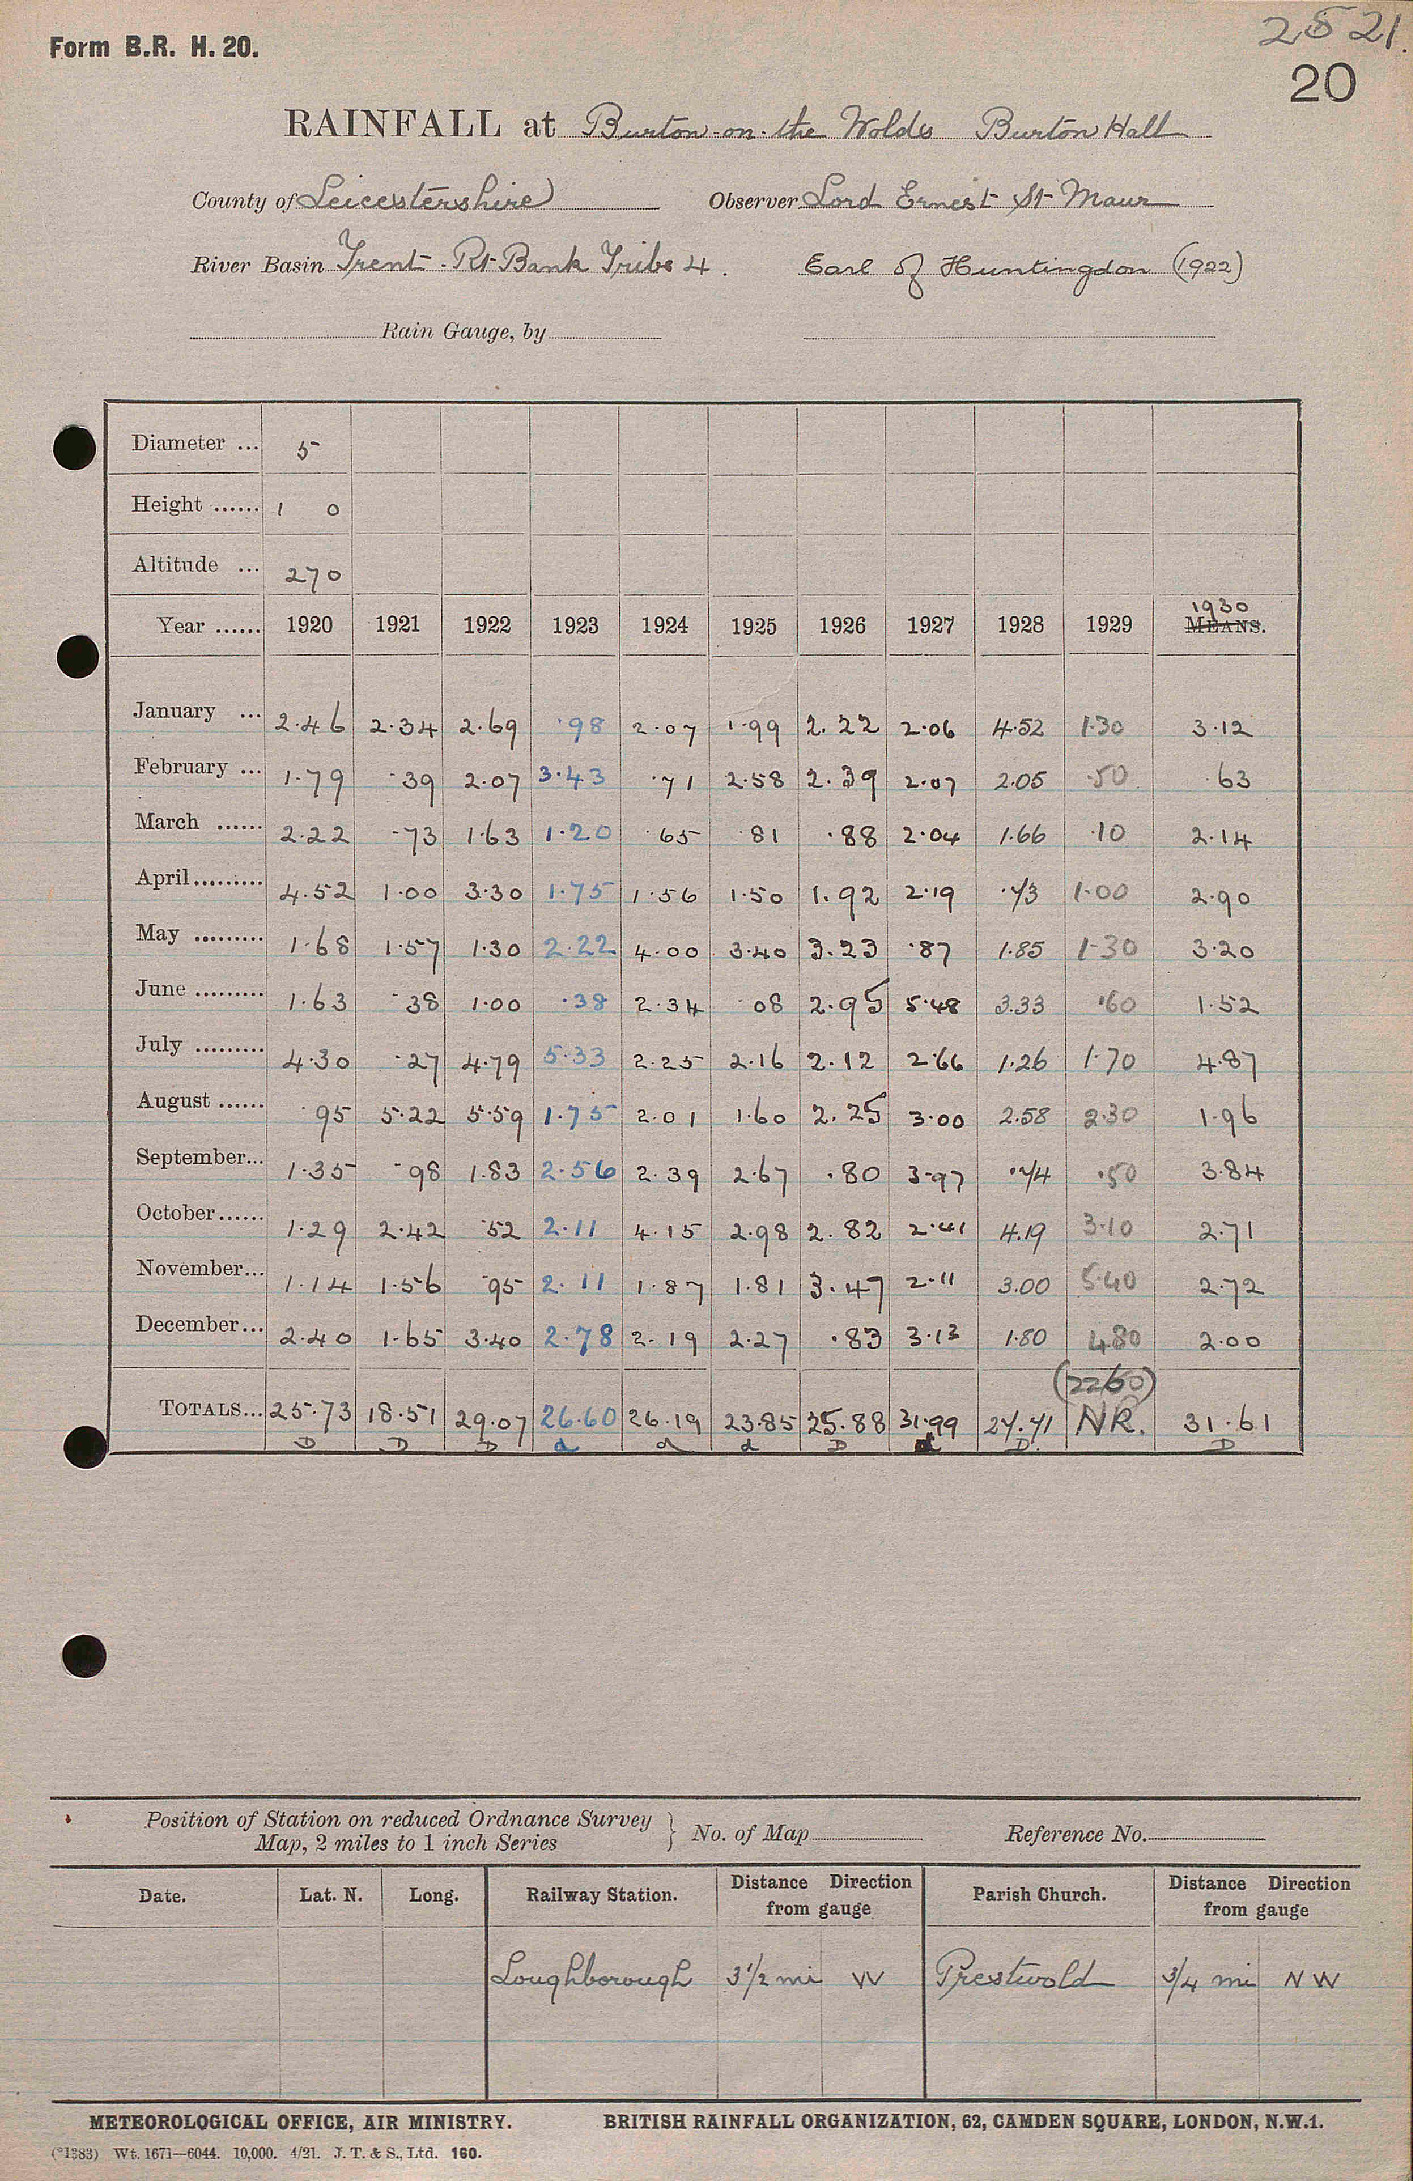 Form B.R. H. 20.
2521.
20
RAINFALL at Burton-on-the Wolds Burton Hall
County of Leicestershire Observer Lord Ernest St Maur
River Basin Trent. Rt Bank Tribs 4. Earl of Huntingdon (1922)
Rain Gauge, by
Diameter ... 5
Height ...... 1 0
Altitude ... 270
Year ...... 1920 1921 1922 1923 1924 1925 1926 1927 1928 1929 1930 MEANS.
January ... 2.46 2.34 2.69 .98 2.07 1.99 2.22 2.06 4.52 1.30 3.12
February ... 1.79 .39 2.07 3.43 .71 2.58 2.39 2.07 2.05 .50 .63
March ...... 2.22 .73 1.63 1.20 .65 .81 .88 2.04 1.66 .10 2.14
April......... 4.52 1.00 3.30 1.75 1.56 1.50 1.92 2.19 .73 1.00 2.90
May ......... 1.68 1.57 1.30 2.22 4.00 3.40 3.23 .87 1.85 1.30 3.20
June ......... 1.63 .38 1.00 .38 2.34 .08 2.95 5.48 3.33 .60 1.52
July ......... 4.30 .27 4.79 5.33 2.25 2.16 2.12 2.66 1.26 1.70 4.87
August ...... .95 5.22 5.59 1.75 2.01 1.60 2.25 3.00 2.58 2.30 1.96
September... 1.35 .98 1.83 2.56 2.39 2.67 .80 3.97 .74 .50 3.84
October...... 1.29 2.42 .52 2.11 4.15 2.98 2.82 2.41 4.19 3.10 2.71
November... 1.14 1.56 .95 2.11 1.87 1.81 3.47 2.11 3.00 5.40 2.72
December... 2.40 1.65 3.40 2.78 2.19 2.27 .83 3.13 1.80 4.80 2.00
(2260)
TOTALS... 25.73 18.51 29.07 26.60 26.19 23.85 25.88 31.99 27.71 NR. 31.61
D D D d d d D d D. D
Position of Station on reduced Ordnance Survey
Map, 2 miles to 1 inch Series } No. of Map Reference No.
Date. Lat. N. Long. Railway Station. Distance Direction from gauge Parish Church. Distance Direction from gauge
Loughborough 3 1/2 mi W Prestwold 3/4 mi N W
METEOROLOGICAL OFFICE, AIR MINISTRY. BRITISH RAINFALL ORGANIZATION, 62, CAMDEN SQUARE, LONDON, N.W.1.
(*1383) Wt. 1671—6044. 10,000. 4/21. J. T. & S., Ltd. 160.